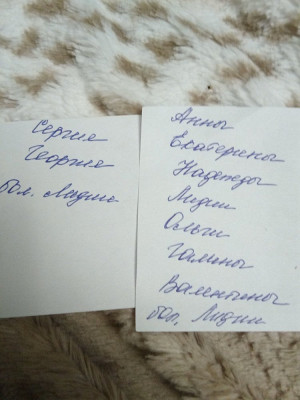 Сергие
Георгие
бол. Лидие
Анны
Екатерины
Надежды
Лидии
Ольги
Галины
Валентины
бол. Лидии